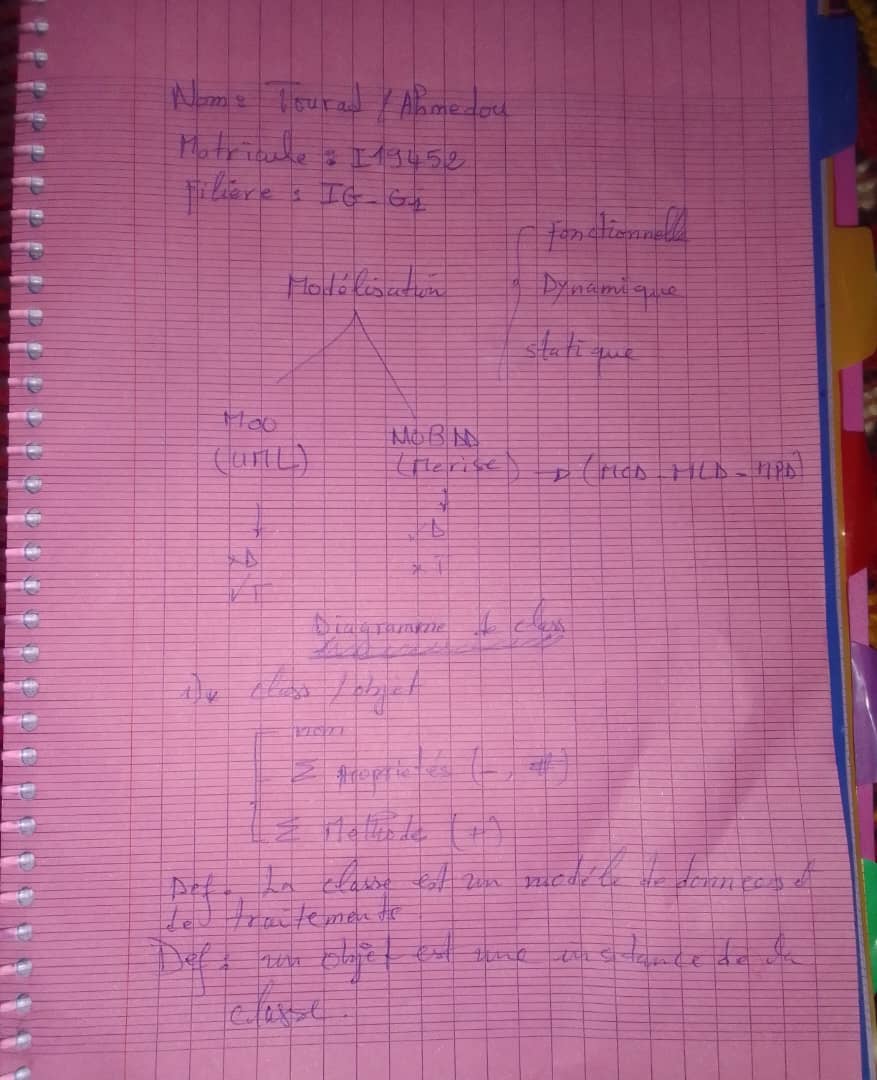 Nom : Tourad / Ahmedou
Matricule : I19452
Filière : IG-G1
Modélisation
fonctionnelle
Dynamique
statique
MOO
(UML)
MOBDD
(Merise) → (MCD - MLD - MPD)
↓
×D
√T
↓
√D
×T
Diagramme de class
1) class / objet
nom
Σ propriétés (-, #)
Σ Methode (+)
Def : La classe est un modéle de données et
de traitements
Def : un objet est une instance de la
classe.